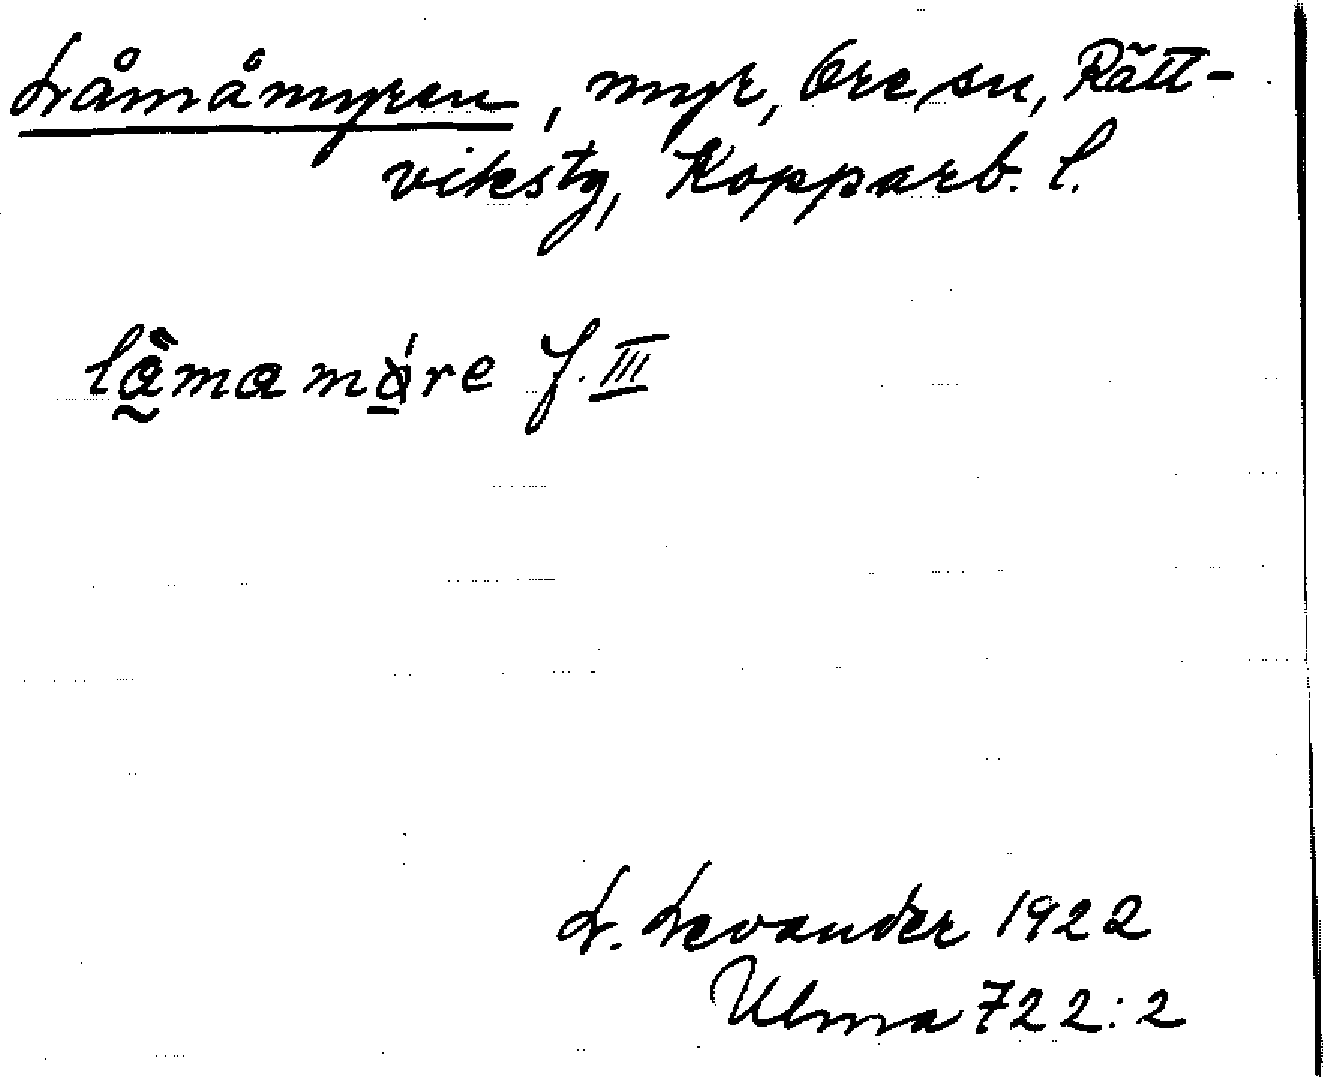 Låmåmyren, myr, Ore sn, Rätt-
vikstg, Kopparb. l.
lämamóre f. III
L. Levander 1922
Ulma 722:2